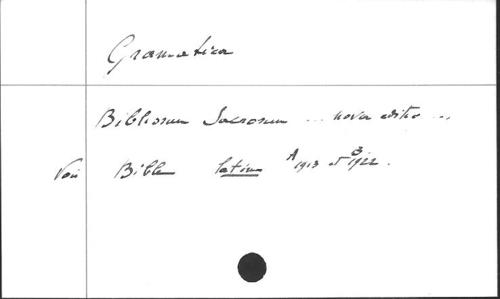 Grammatica
Bibliorum Sacrorum ... nova editio ...
Voir Bible latine A 1913 et B 1922.